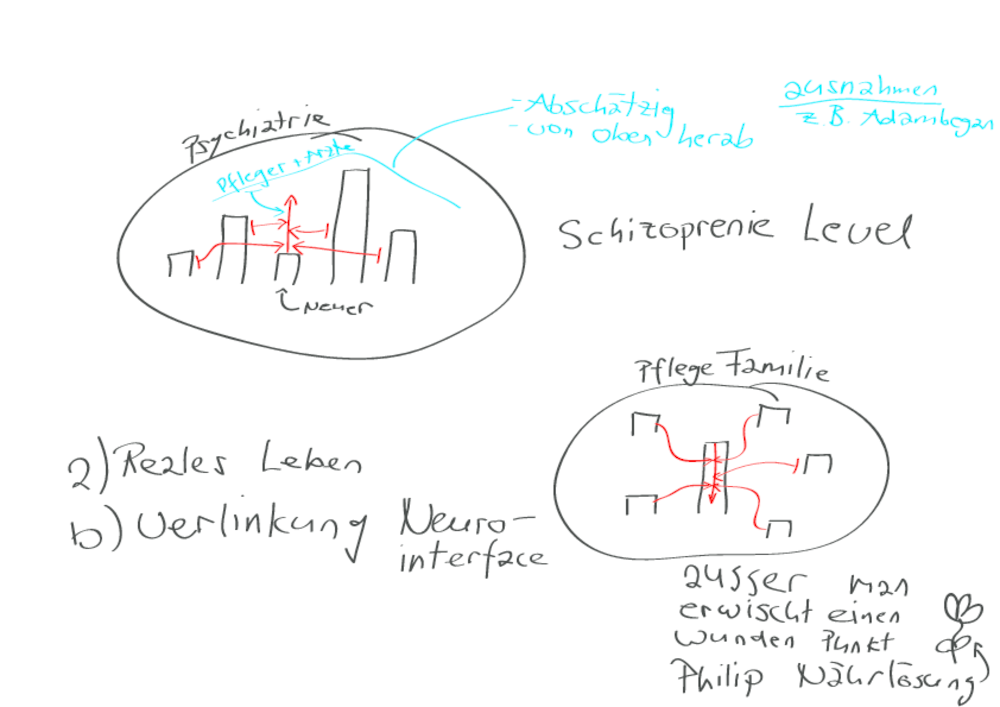 Psychiatrie
Pfleger + Ärzte
- Abschätzig
- von oben herab
ausnahmen
z.B. Adambegan
Neuer
Schizoprenie Level
Pflege Familie
a) Reales Leben
b) Verlinkung Neuro-
interface
ausser man
erwischt einen
wunden Punkt
Philip Nährlösung